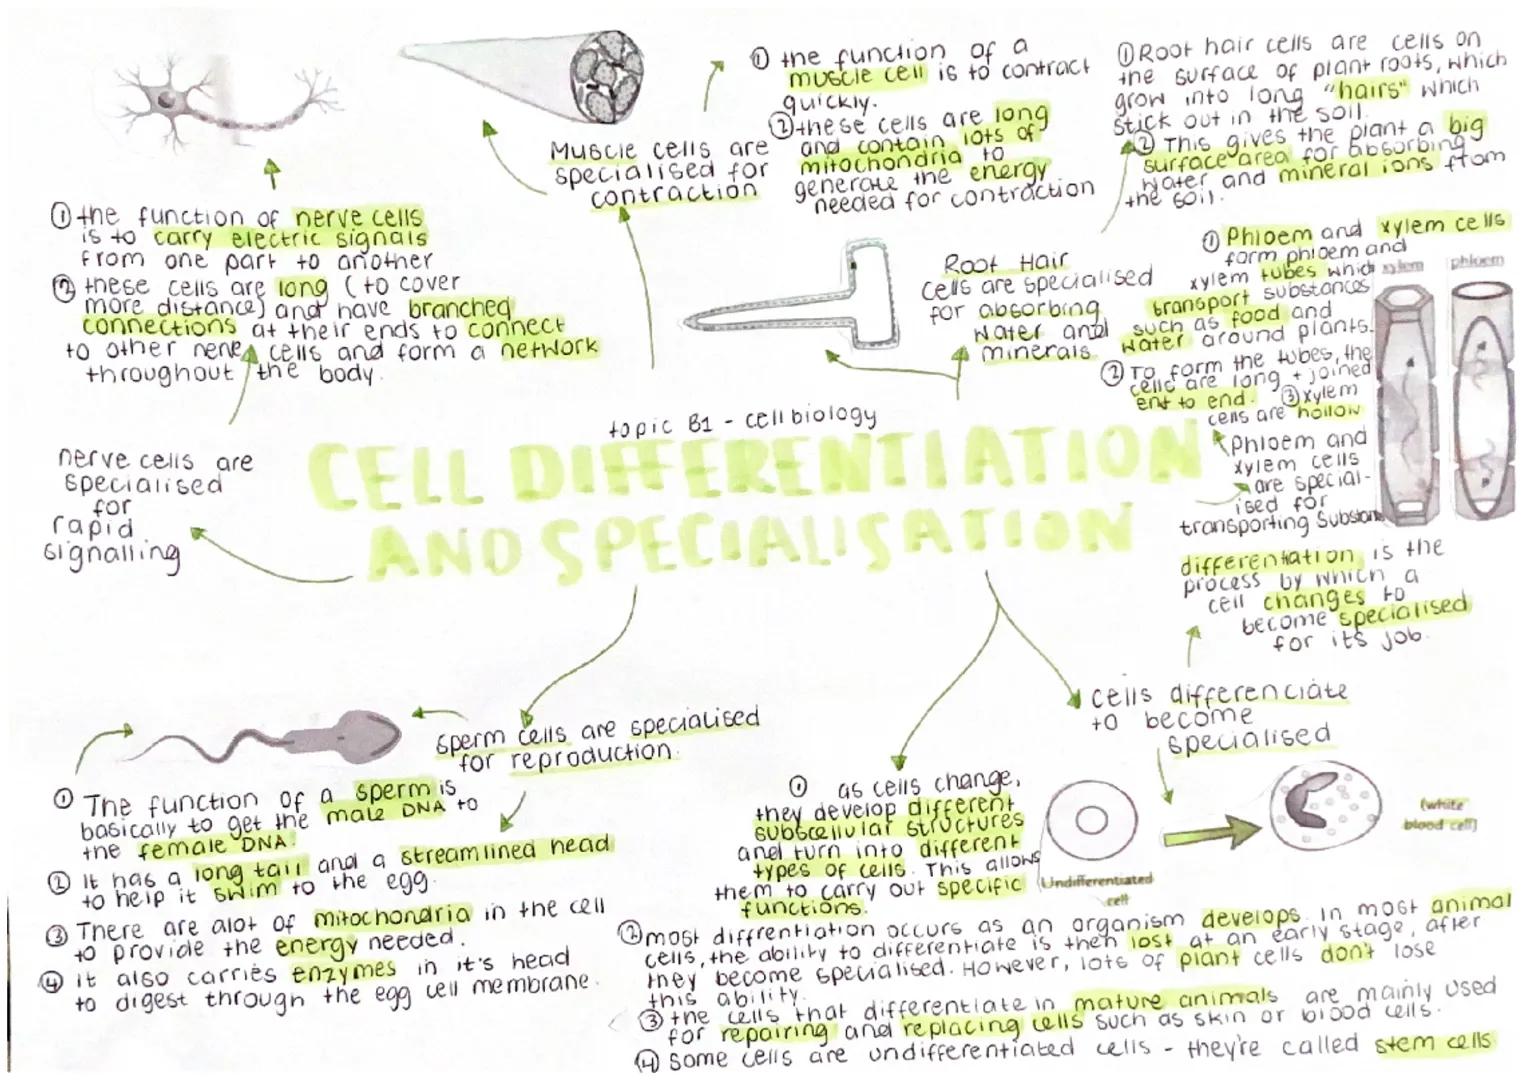 topic B1 - cell biology
CELL DIFFERENTIATION
AND SPECIALISATION
① the function of nerve cells
is to carry electric signals
from one part to another
② these cells are long (to cover
more distance) and have branched
connections at their ends to connect
to other nerve cells and form a network
throughout the body.
nerve cells are
specialised
for
rapid
signalling
Muscle cells are
specialised for
contraction
① the function of a
muscle cell is to contract
quickly.
② these cells are long
and contain lots of
mitochondria to
generate the energy
needed for contraction
① Root hair cells are cells on
the surface of plant roots, which
grow into long "hairs" which
stick out in the soil.
② This gives the plant a big
surface area for absorbing
water and mineral ions from
the soil.
Root Hair
cells are specialised
for absorbing
water and
minerals
① Phloem and xylem cells
form phloem and
xylem tubes which
transport substances
such as food and
water around plants.
② To form the tubes, the
cells are long + joined
end to end. ③ xylem
cells are hollow
xylem
phloem
Phloem and
xylem cells
are special-
ised for
transporting Substan
differentiation is the
process by which a
cell changes to
become specialised
for its job.
cells differenciate
to become
specialised
sperm cells are specialised
for reproduction.
① The function of a sperm is
basically to get the male DNA to
the female DNA.
② It has a long tail and a streamlined head
to help it swim to the egg.
③ There are alot of mitochondria in the cell
to provide the energy needed.
④ it also carries enzymes in it's head
to digest through the egg cell membrane.
① as cells change,
they develop different
subscellular structures
and turn into different
types of cells. This allows
them to carry out specific
functions.
Undifferentiated
cell
(white
blood cell)
② most diffrentiation occurs as an organism develops. in most animal
cells, the ability to differentiate is then lost at an early stage, after
they become specialised. However, lots of plant cells don't lose
this ability.
③ the cells that differentiate in mature animals are mainly used
for repairing and replacing cells such as skin or blood cells.
④ Some cells are undifferentiated cells - they're called stem cells